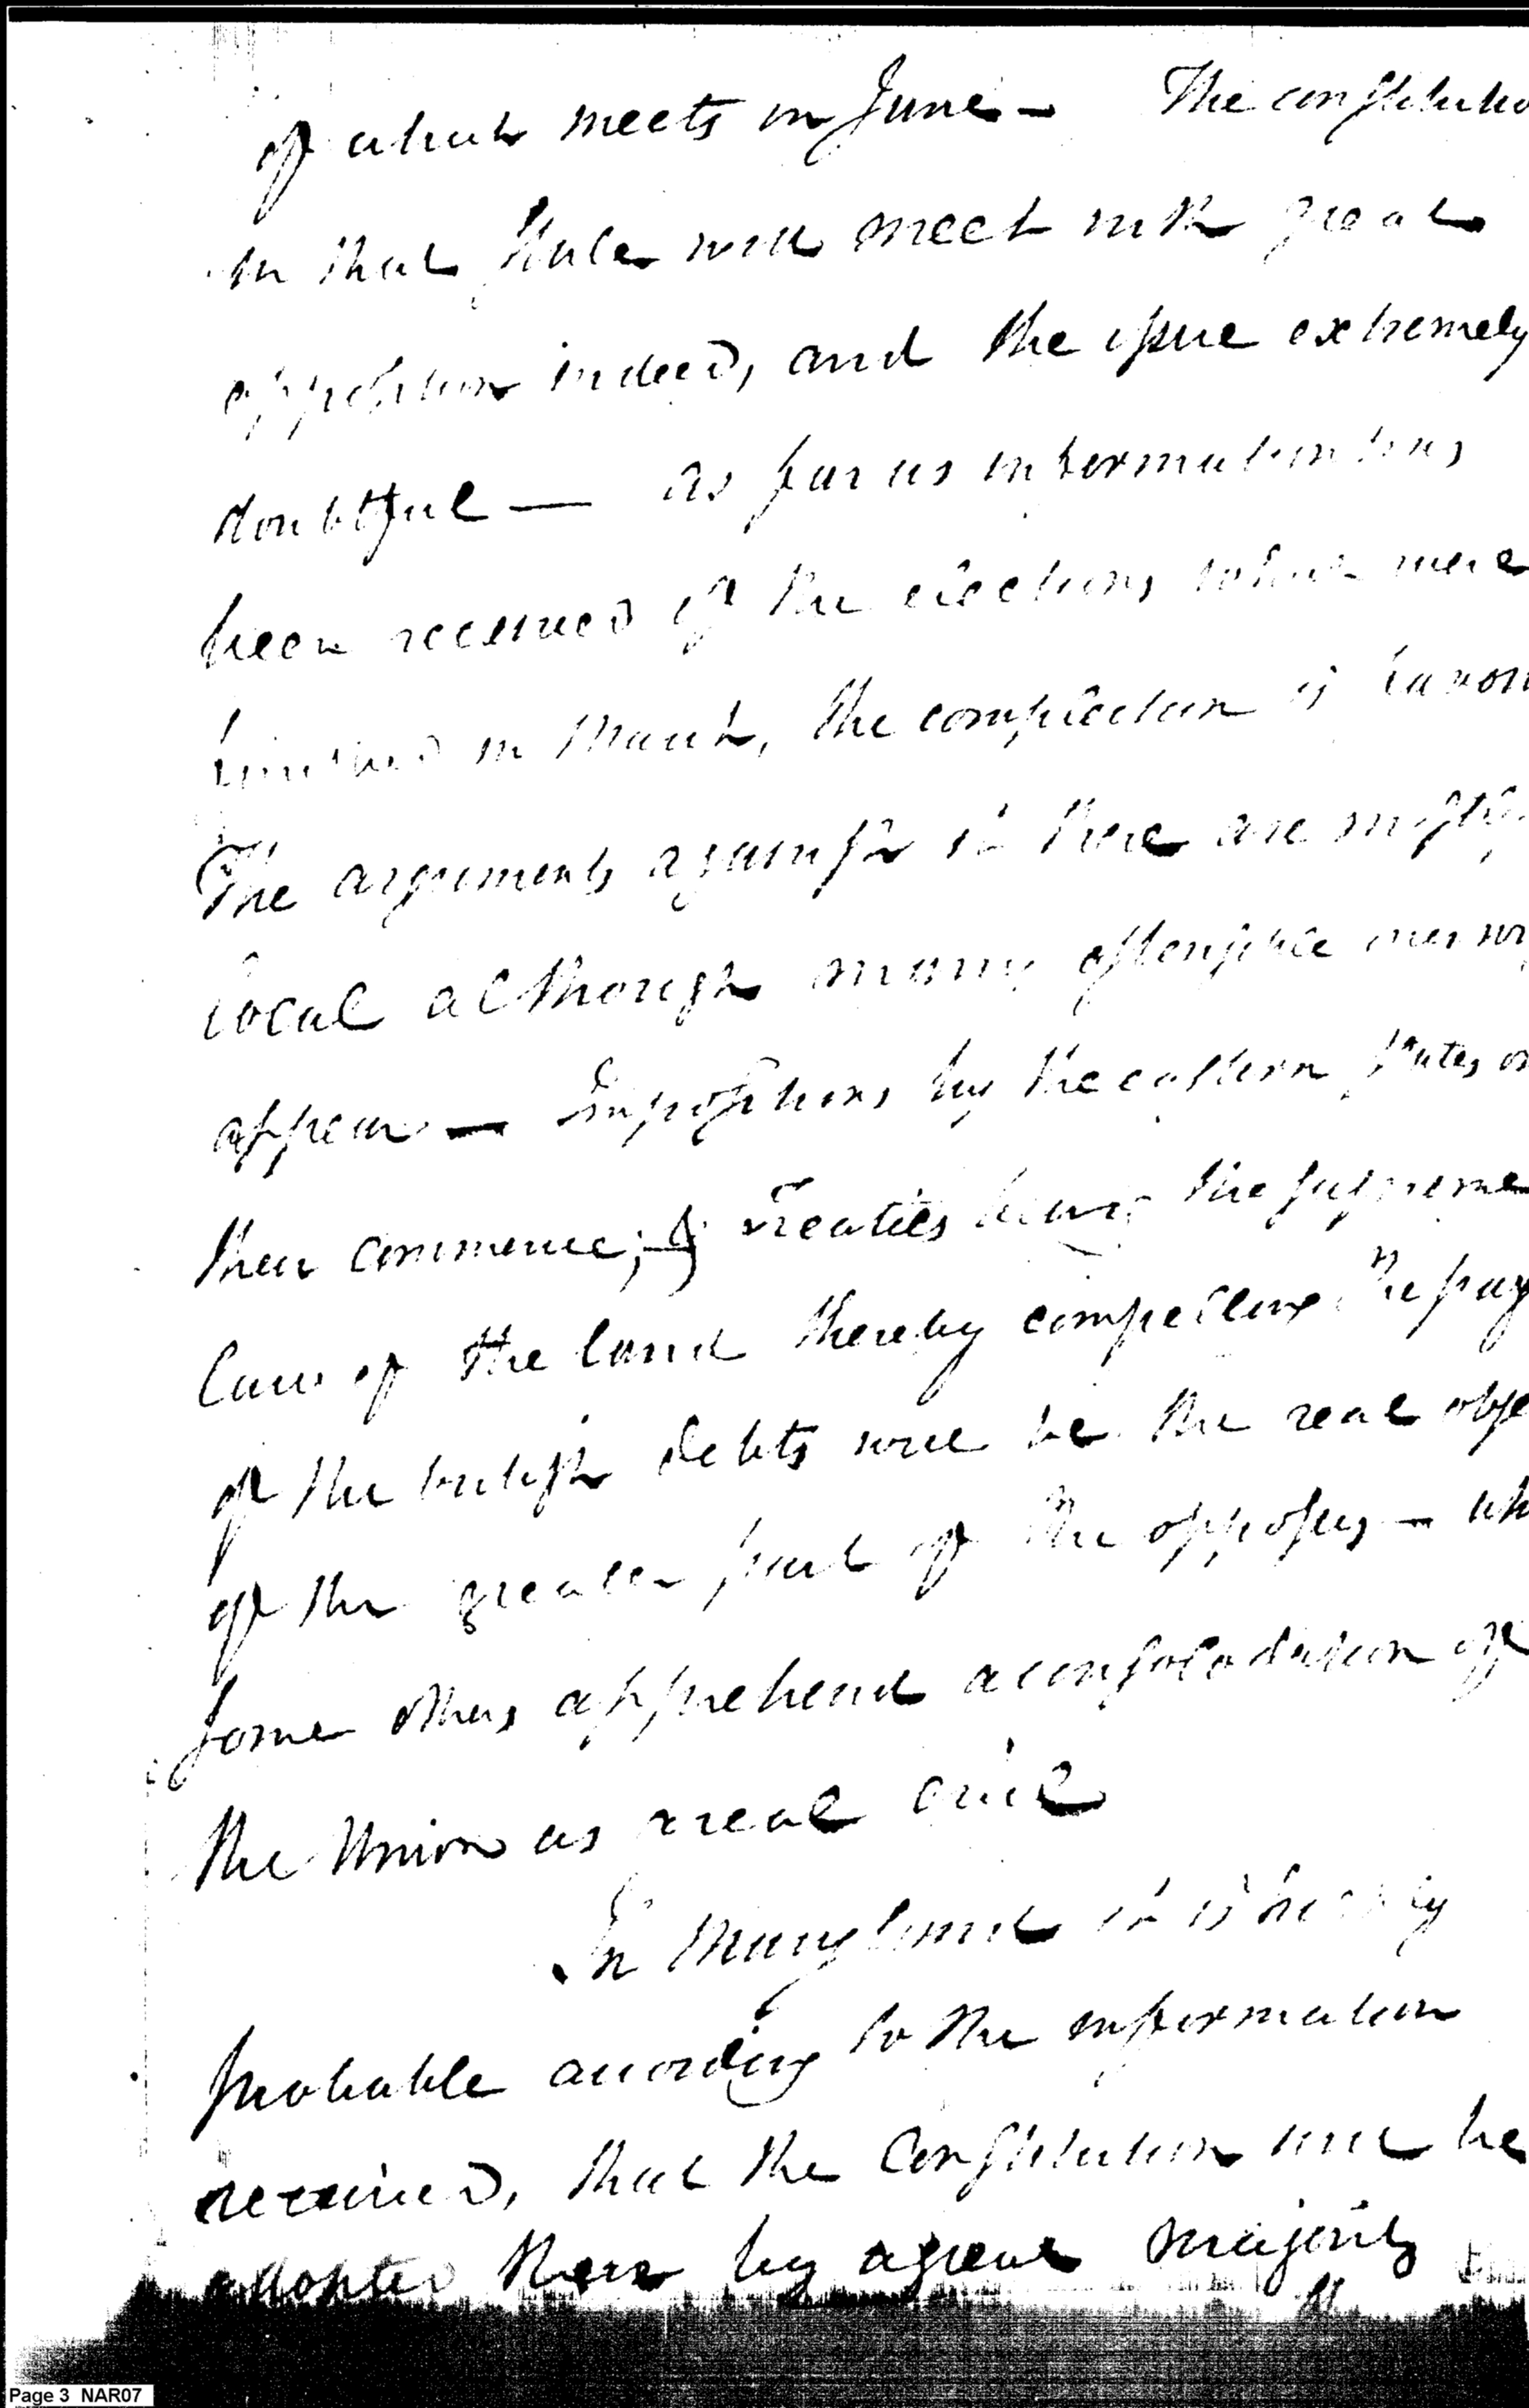 of which meets in June — The constitutio
in that State will meet with great
opposition indeed, and the issue extremely
doubtful — as far as information has
been received of the elections which were
finished in March, the complection is favor
The arguments against it there are mostly
local although many ostensible ones
appear — Impositions by the eastern States on
their commerce; Treaties being the supreme
law of the land thereby compelling the pay
of the british debts will be the real obje
of the greater part of the opposers — wh
some others apprehend a consolodation of
the Union as a real evil
In Maryland it is highly
probable according to the information
received, that the Constitution will be
adopted there by a great majority
Page 3 NAR07